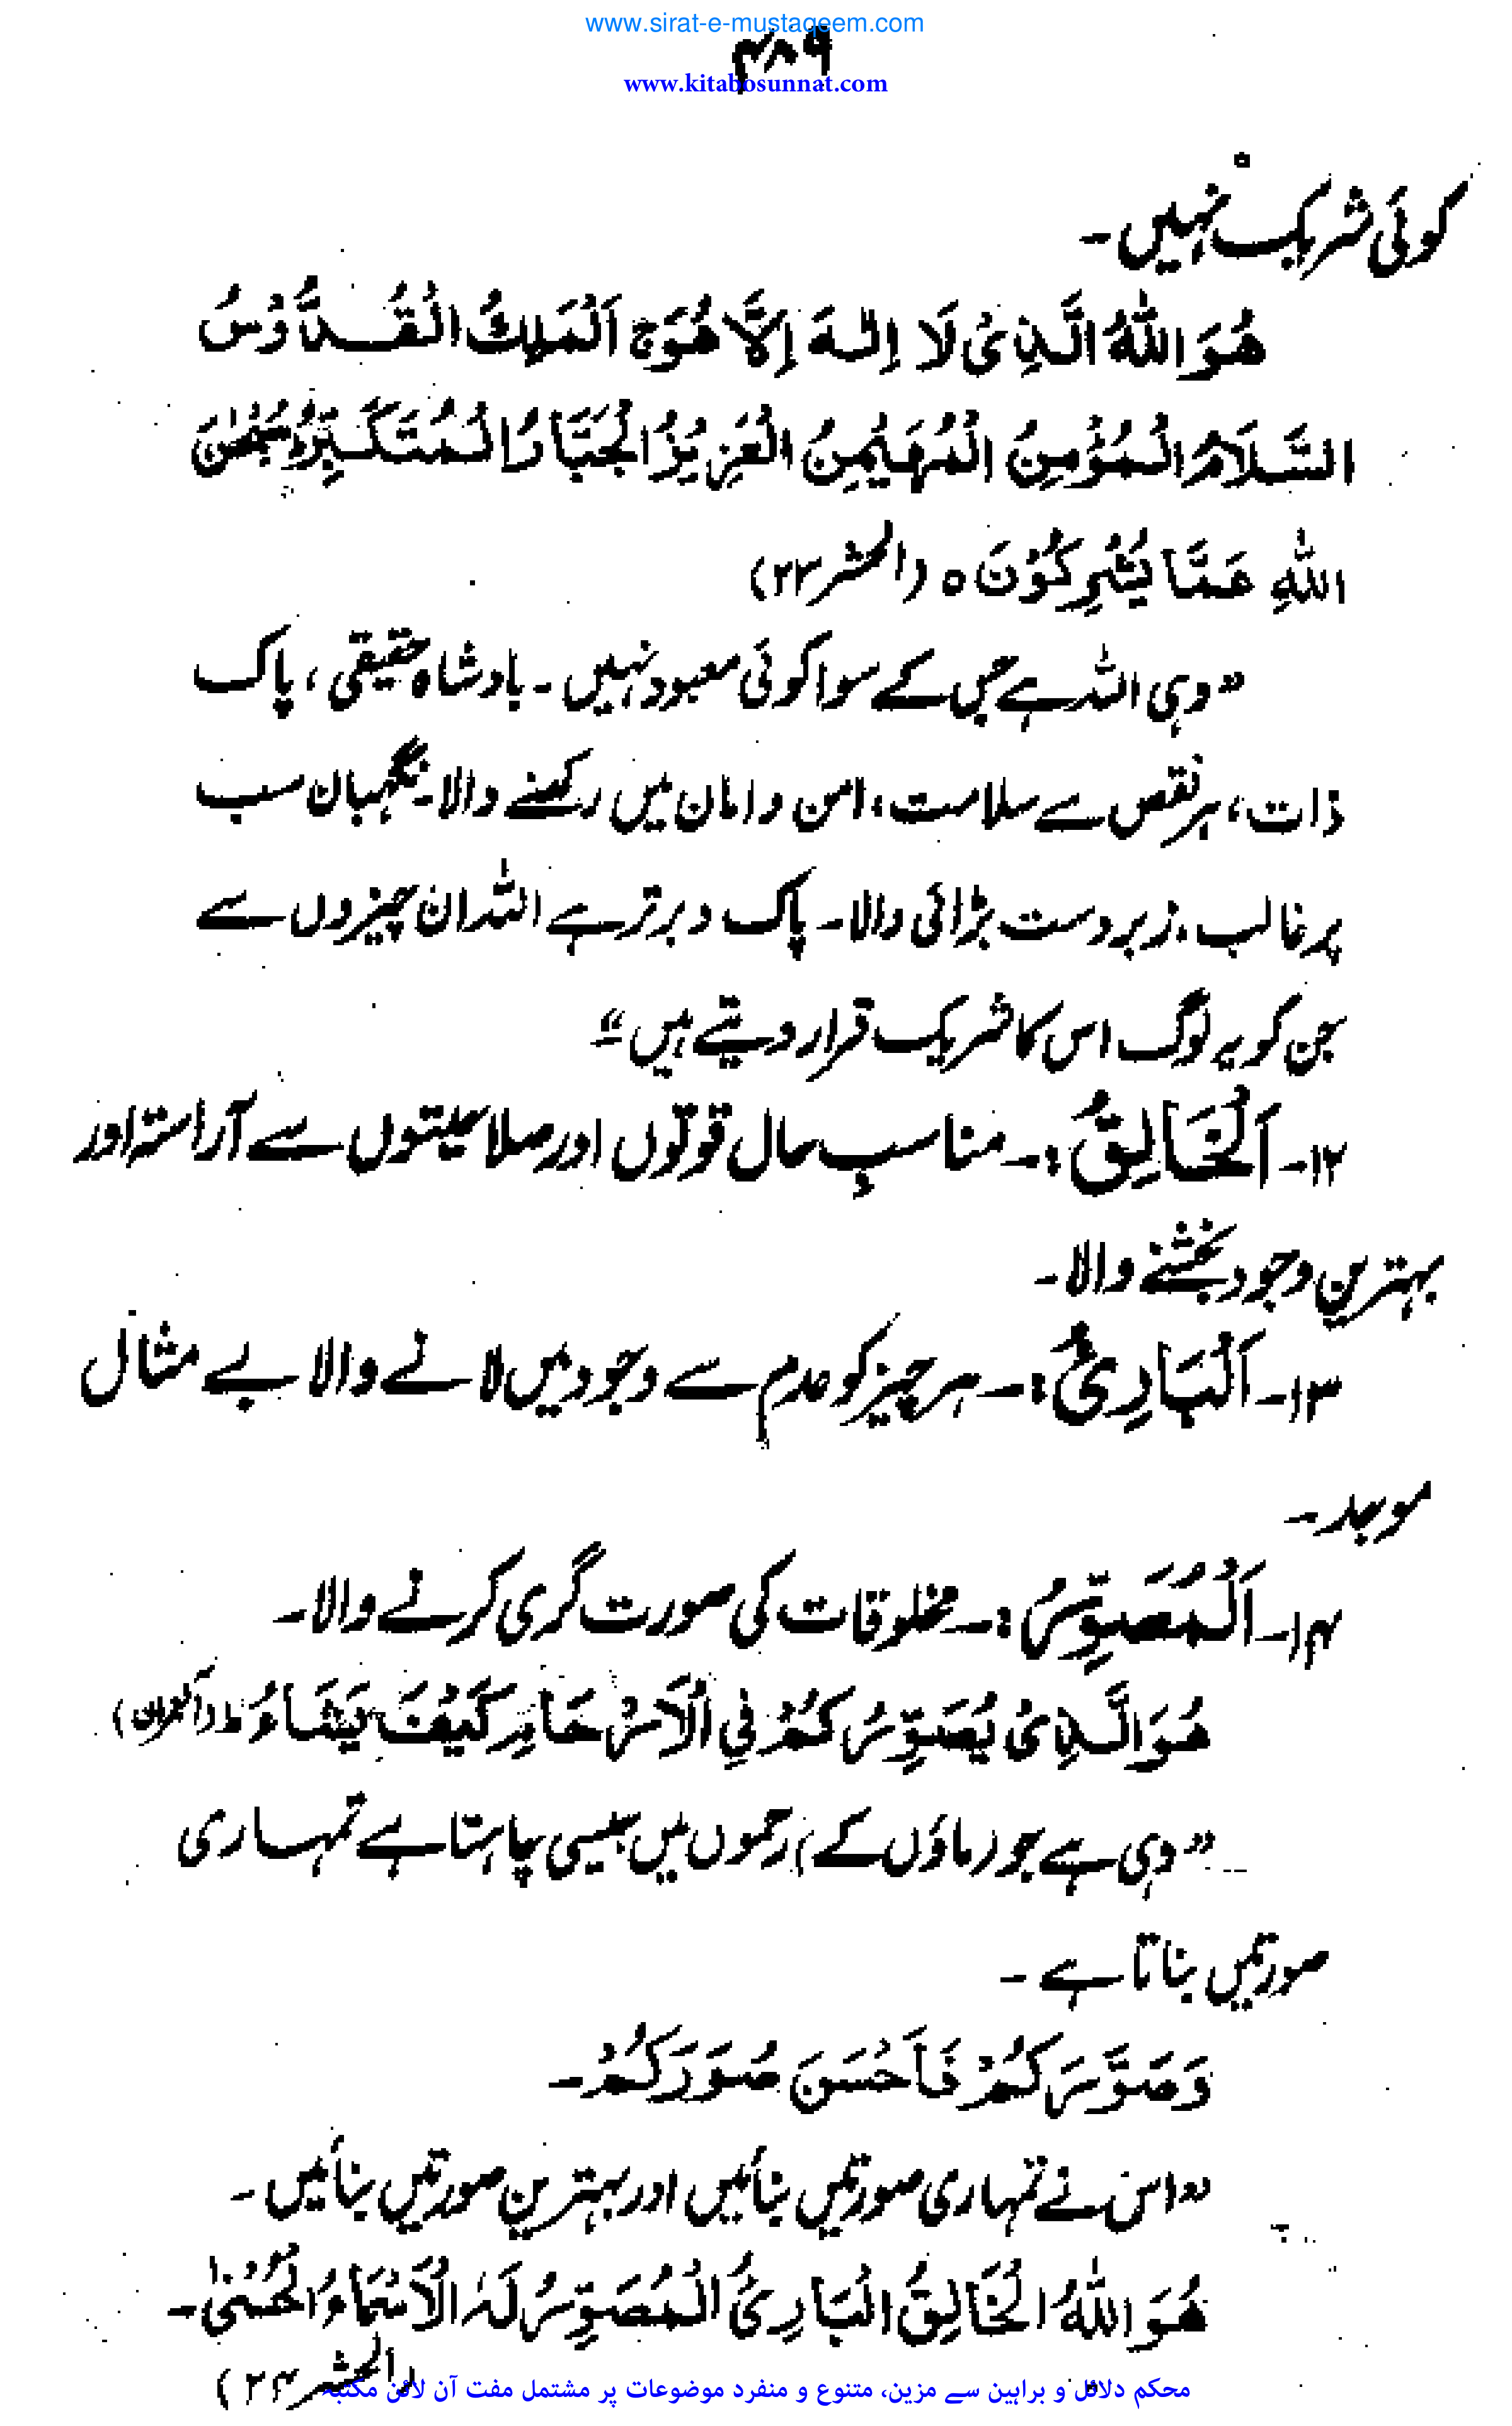 www.sirat-e-mustaqeem.com
۴۸۹
www.kitabosunnat.com
کوئی شریک نہیں۔
هُوَ اللّٰهُ الَّذِیْ لَا اِلٰهَ اِلَّا هُوَ ج اَلْمَلِكُ الْقُدُّوْسُ
السَّلَامُ الْمُؤْمِنُ الْمُهَيْمِنُ الْعَزِيْزُ الْجَبَّارُ الْمُتَكَبِّرُ سُبْحٰنَ
اللّٰهِ عَمَّا يُشْرِكُوْنَ ه (الحشر ۲۳)
”وہی اللہ ہے جس کے سوا کوئی معبود نہیں۔ بادشاہ حقیقی، پاک
ذات، ہر نقص سے سلامت، امن و امان میں رکھنے والا۔ نگہبان سب
پر غالب، زبردست بڑائی والا۔ پاک و برتر ہے اللہ ان چیزوں سے
جن کو یہ لوگ اس کا شریک قرار دیتے ہیں“
۱۲۔ اَلْخَالِقُ :۔ مناسبِ حال قوتوں اور صلاحیتوں سے آراستہ اور
بہترین وجود بخشنے والا۔
۱۳۔ اَلْبَارِئُ :۔ ہر چیز کو عدم سے وجود میں لانے والا بے مثال
موجد۔
۱۴۔ اَلْمُصَوِّرُ :۔ مخلوقات کی صورت گری کرنے والا۔
هُوَ الَّذِیْ يُصَوِّرُكُمْ فِی الْاَرْحَامِ كَيْفَ يَشَاءُ ط (آل عمران)
”وہی ہے جو (ماؤں کے) رحموں میں جیسی چاہتا ہے تمہاری
صورتیں بناتا ہے۔
وَصَوَّرَكُمْ فَاَحْسَنَ صُوَرَكُمْ۔
”اس نے تمہاری صورتیں بنائیں اور بہترین صورتیں بنائیں۔
هُوَ اللّٰهُ الْخَالِقُ الْبَارِئُ الْمُصَوِّرُ لَهُ الْاَسْمَاءُ الْحُسْنٰی۔
(الحشر ۲۴)
محکم دلائل و براہین سے مزین، متنوع و منفرد موضوعات پر مشتمل مفت آن لائن مکتبہ